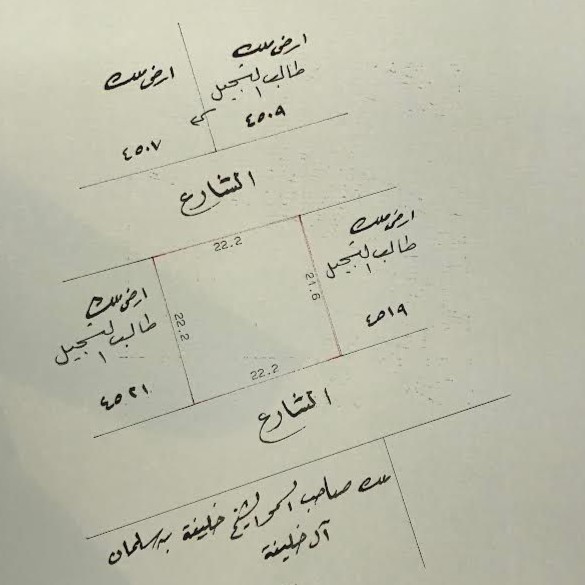 ارض ملك
طالب التسجيل
٤٥٠٩
ارض ملك
٤٥٠٧
الشارع
22.2
ارض ملك
طالب التسجيل
٤٥١٩
21.6
22.2
ارض ملك
طالب التسجيل
٤٥٢١
22.2
الشارع
ملك صاحب السمو الشيخ خليفة بن سلمان
آل خليفة